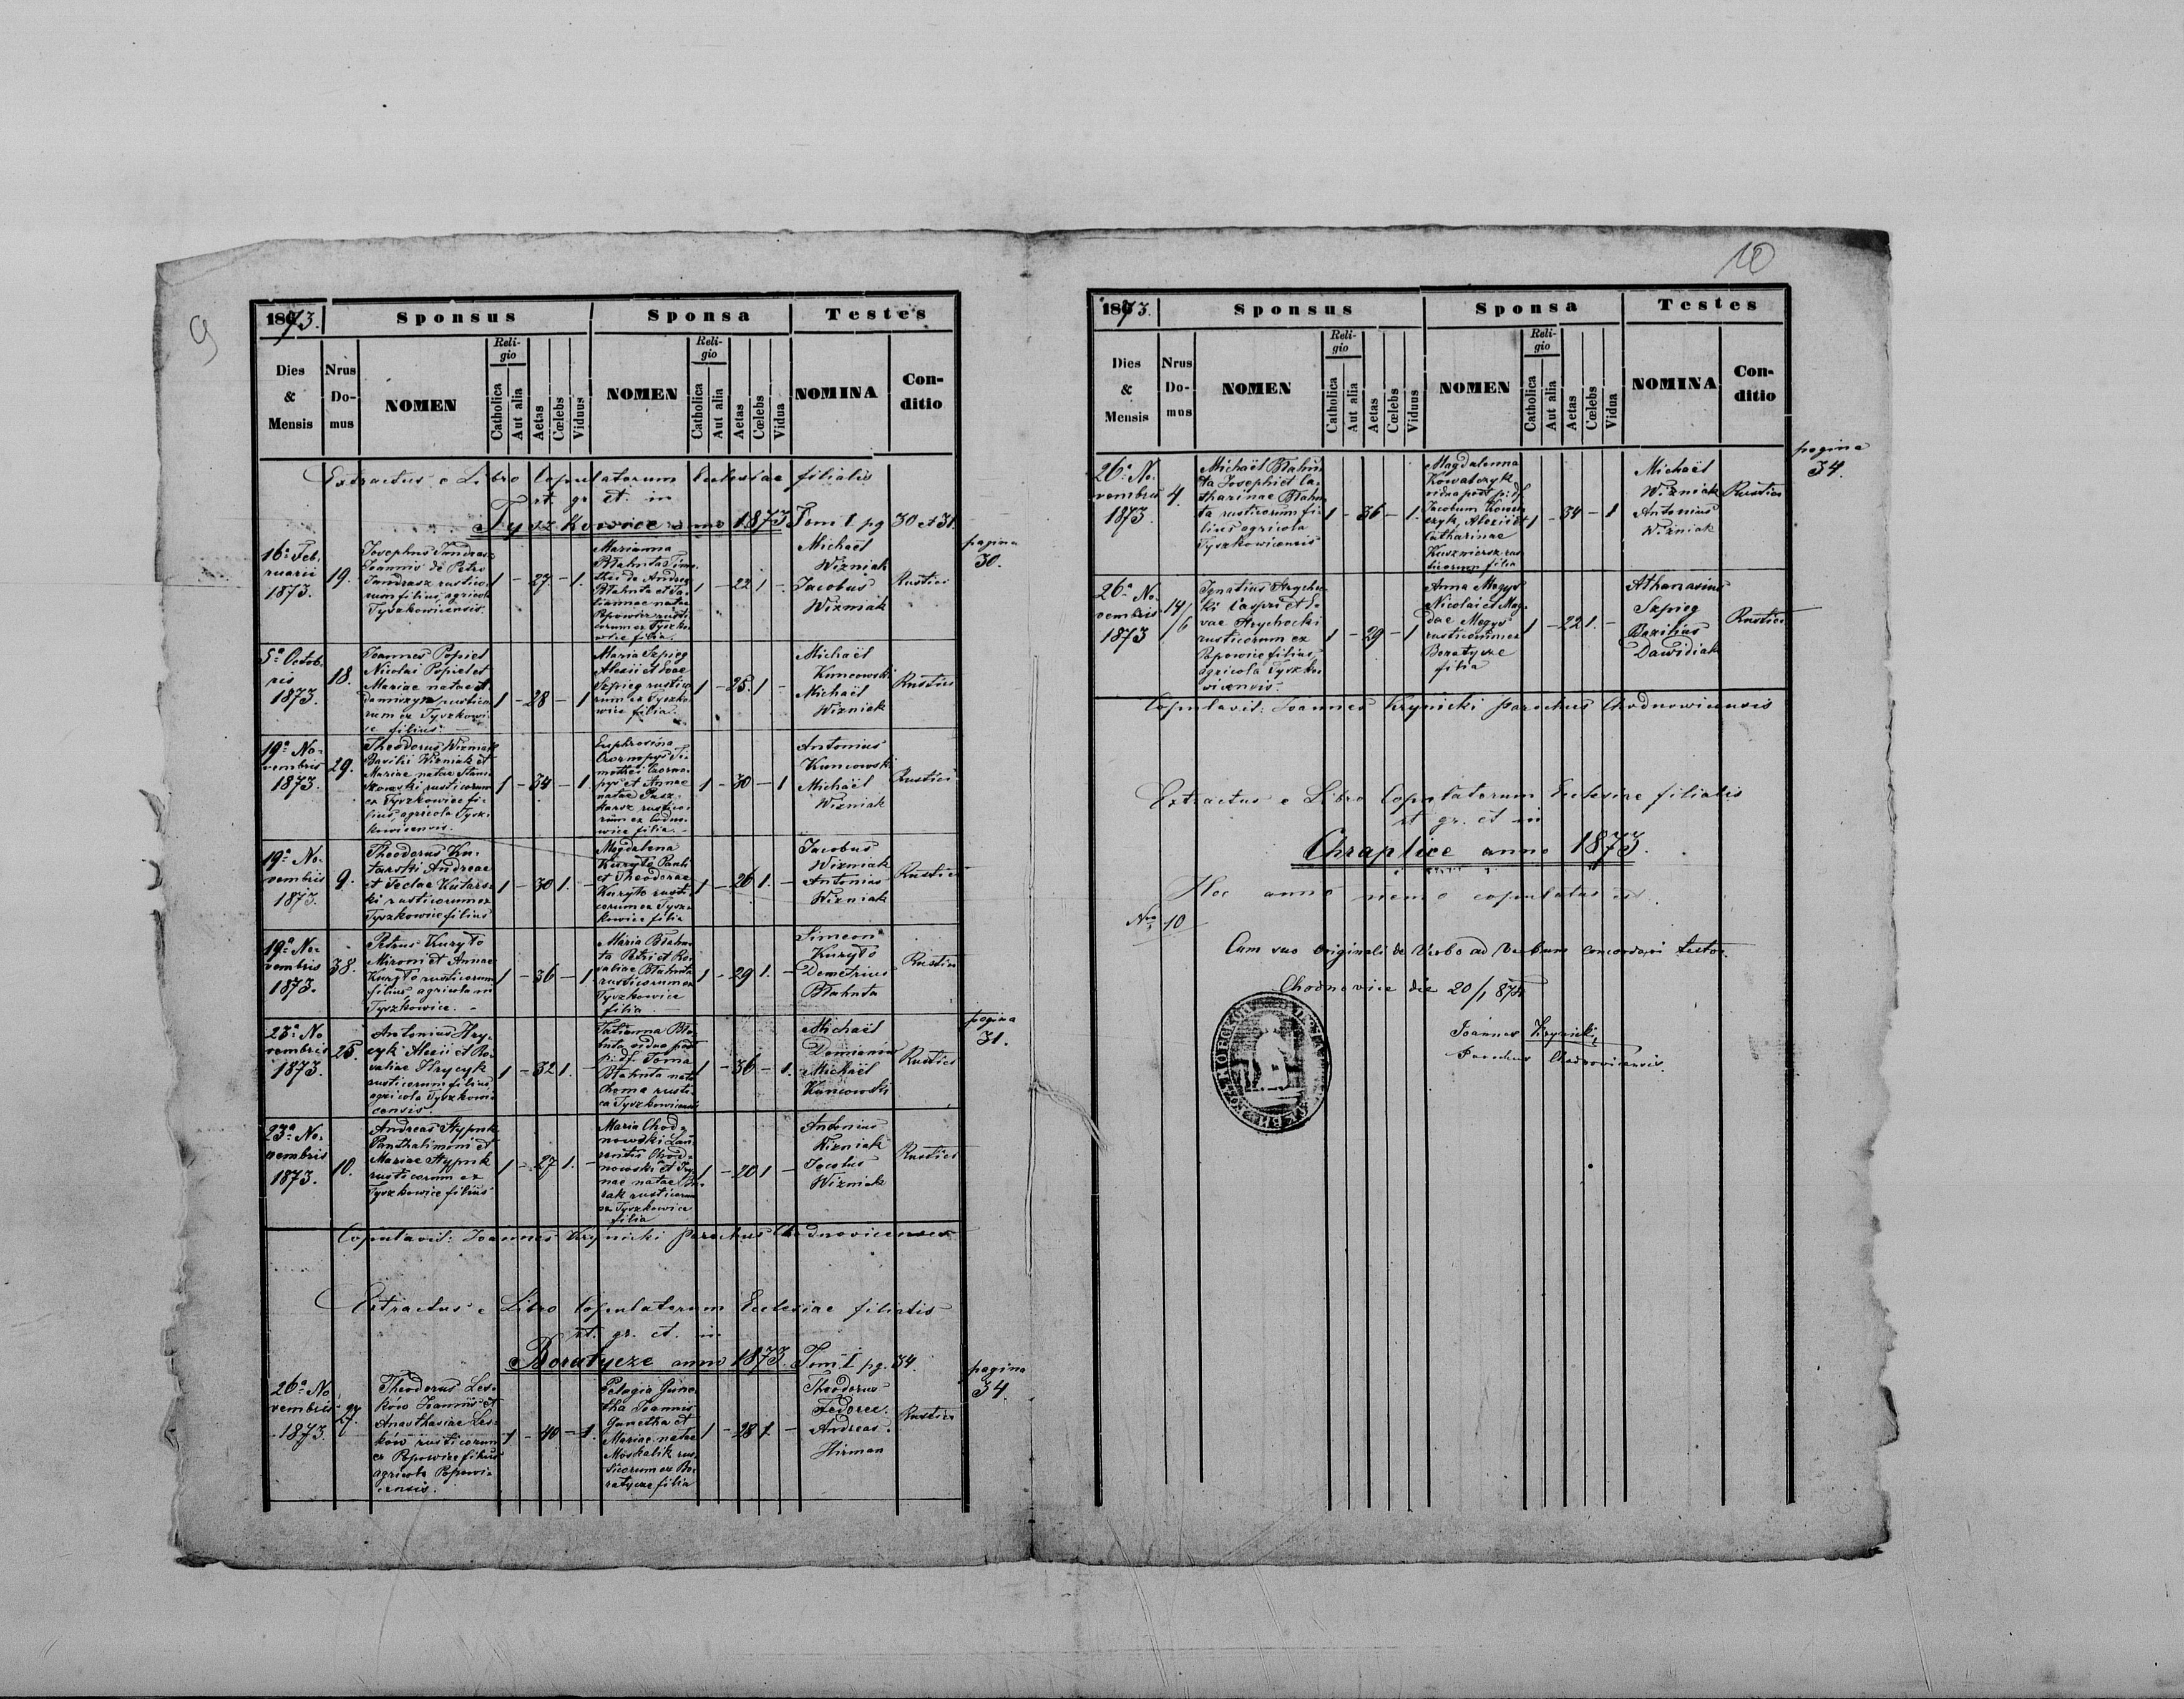 9
1873.
Sponsus
Sponsa
Testes
Dies
&
Mensis
Nrus
Do-
mus
NOMEN
Reli-
gio
Catholica
Aut alia
Aetas
Cœlebs
Viduus
NOMEN
Reli-
gio
Catholica
Aut alia
Aetas
Cœlebs
Vidua
NOMINA
Con-
ditio
Extractus e Libro Copulatorum Ecclesiae filialis
rt. gr. ct. in
Tyszkowice anno 1873 Tom I. pg 30 et 31.
pagina
30.
16a Feb.
ruarii
1873.
19.
Josephus Jandrasz
Joannis de Petro
Jandrasz rustico-
rum filius, agricola
Tyszkowicensis.
1 - 27 - 1.
Marianna
Błahuta Timo-
thei de Andrea
Błahuta et Ta-
tiannae natae
Popowicz rusti-
corum ex Tyszko-
wice filia.
1 - 22 1 -
Michaël
Wizniak
Jacobus
Wizniak
Rustici
5a Octob.
ris
1873.
18.
Joannes Popiel
Nicolai Popiel et
Mariae natae
rustico-
rum ex Tyszkowi-
ce filius.
1 - 28 - 1
Maria Szpieg
Alexii et Evae
Szpieg rustico-
rum ex Tyszko-
wice filia.
1 - 25. 1 -
Michaël
Kuncowski
Michaël
Wizniak
Rustici
19a No-
vembris
1873.
29.
Theodorus Wizniak
Basilii Wizniak et
Mariae natae Stani-
szowski rusticorum
ex Tyszkowice fi-
lius, agricola Tysz-
kowicensis.
1 - 34 - 1.
Euphrosina
Czornopys Ti-
mothei Czorno-
pys et Annae
natae Pasz-
karz rustico-
rum ex
wice filia.
1 - 30 - 1
Antonius
Kuncowski
Michaël
Wizniak
Rustici
19a No-
vembris
1873.
9.
Theodorus Ku-
tarski Andreae
et Teclae Kutars-
ki rusticorum ex
Tyszkowice filius
1 - 30 1. -
Magdalena
Kuryło Pauli
et Theodorae
Kuryło rusti-
corum ex Tysz-
kowice filia
1 - 26 1. -
Jacobus
Wizniak
Antonius
Wizniak
Rustici
19a No-
vembris
1873.
38.
Petrus Kuryło
Mironi et Annae
Kuryło rusticorum
filius, agricola in
Tyszkowice.
1 - 36 - 1.
Maria Błahu-
ta Petri et Ro-
saliae Błahuta
rusticorum ex
Tyszkowice
filia
1 - 29 1. -
Simeon
Kuryło
Demetrius
Błahuta
Rustici
pagina
31.
23a No
vembris
1873.
25.
Antonius Hry-
cyk Alexii et Ro-
saliae Hrycyk
rusticorum filius,
agricola Tyszkowi-
censis.
1 - 32 1. -
Tatianna Bła-
huta vidua post
p. df. Toma
Błahuta nata
Choma rusti-
ca Tyszkowicensis
1 - 36 - 1.
Michaël
Damian
Michaël
Kuncowski
Rustici
23a No-
vembris
1873.
10.
Andreas Hypnk
Panthalimoni et
Mariae Hypnk
rusticorum ex
Tyszkowice filius
1 - 27 1. -
Maria Chod-
nowski Lau-
rentii Chod-
nowski et
nae natae
rusticorum
ex Tyszkowice
filia
1 - 20 1 -
Antonius
Wizniak
Jacobus
Wizniak
Rustici
Copulavit: Joannes Krynicki parochus Chodnowicensis
Extractus e Libro Copulatorum Ecclesiae filialis
rt. gr. ct. in
Boratycze anno 1873. Tom I pg. 34.
pagina
34.
26a No
vembris
1873.
27.
Theodorus Les-
ków Joannis et
Anasthasiae Les-
ków rusticorum
ex Popowice filius
agricola Popowi-
censis.
1 - 40 - 1.
Pelagia Gune-
tha Joannis
Gunetha et
Mariae natae
Moskalik rus-
ticorum ex Bo-
ratycze filia
1 - 28 1. -
Theodorus
Fedorec.
Andreas
Hirman
Rustici
10
1873.
Sponsus
Sponsa
Testes
Dies
&
Mensis
Nrus
Do-
mus
NOMEN
Reli-
gio
Catholica
Aut alia
Aetas
Cœlebs
Viduus
NOMEN
Reli-
gio
Catholica
Aut alia
Aetas
Cœlebs
Vidua
NOMINA
Con-
ditio
pagina
34.
26a No-
vembris
1873.
4.
Michaël Błahu-
ta Josephi et Ca-
tharinae Błahu-
ta rusticorum fi-
lius agricola
Tyszkowicensis
1 - 36 - 1.
Magdalenna
Kowalczyk
vidua post p. df.
Jacobum Kowal-
czyk, Alexii et
Catharinae
rus-
ticorum filia
1 - 34 - 1
Michaël
Wizniak
Antonius
Wizniak
Rustici
26a No-
vembris
1873
14/6
Ignatius Hrycho-
ki Caspri et E-
vae Hrychocki
rusticorum ex
Popowice filius,
agricola Tyszko-
wicensis.
1 - 29 - 1
Anna Megys
Nicolai et Mag-
dae Megys
rusticorum ex
Boratycze
filia
1 - 22 1. -
Athanasius
Szpieg
Bazilius
Dawidiak
Rustici
Copulavit: Joannes Krynicki parochus Chodnowicensis
Extractus e Libro Copulatorum Ecclesiae filialis
rt gr. ct in
Chraplice anno 1873.
Hoc anno nemo copulatus est.
Nro 10
Cum suo originali de verbo ad verbum concordari testor.
Chodnowice die 20/1 874
Joannes Krynicki,
Parochus Chodnowicensis.